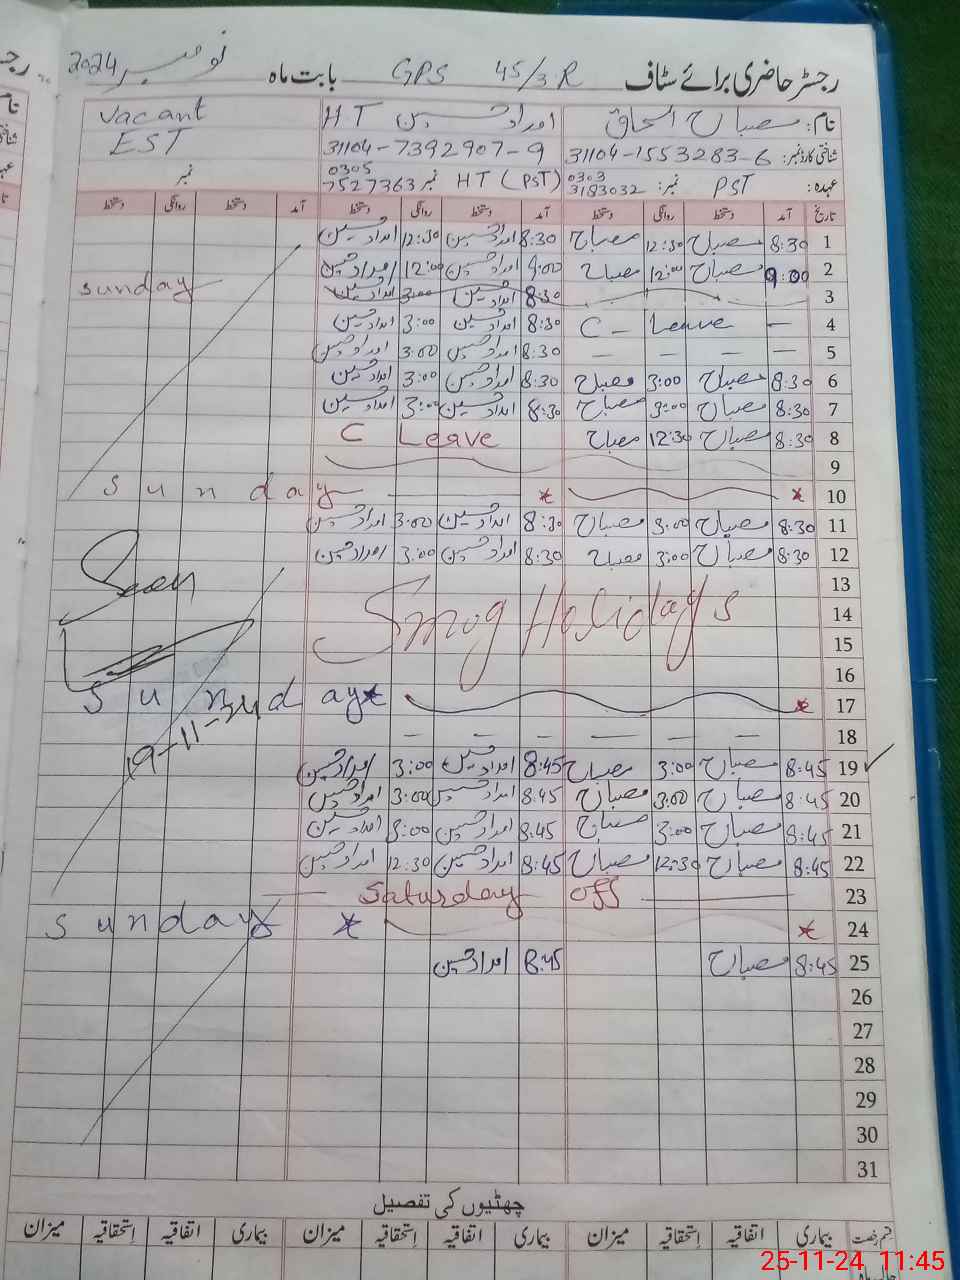 رجسٹر حاضری برائے سٹاف GPS 45/3.R بابت ماہ نومبر 2024
نام: مصباح اسحاق امداد حسین HT Vacant
شناختی کارڈ نمبر: 31104-1553283-6 31104-7392907-9 EST
عہدہ: PST نمبر: 0303 3183032 HT (PST) نمبر 0305 7527363 نمبر
تاریخ آمد دستخط روانگی دستخط آمد دستخط روانگی دستخط آمد دستخط روانگی دستخط
1 8:30 مصباح 12:30 مصباح 8:30 امداد حسین 12:30 امداد حسین
2 9:00 مصباح 12:00 مصباح 9:00 امداد حسین 12:00 امداد حسین
3 8:30 امداد حسین 3:00 امداد حسین sunday
4 C - Leave — 8:30 امداد حسین 3:00 امداد حسین
5 — — — — 8:30 امداد حسین 3:00 امداد حسین
6 8:30 مصباح 3:00 مصباح 8:30 امداد حسین 3:00 امداد حسین
7 8:30 مصباح 3:00 مصباح 8:30 امداد حسین 3:00 امداد حسین
8 8:30 مصباح 12:30 مصباح C Leave
9
10 sunday
11 8:30 مصباح 3:00 مصباح 8:30 امداد حسین 3:00 امداد حسین
12 8:30 مصباح 3:00 مصباح 8:30 امداد حسین 3:00 امداد حسین
13
Seen
14 Smog Holidays
15
16
17 sunday
18 — — — — — —
19-11-
19 8:45 مصباح 3:00 مصباح 8:45 امداد حسین 3:00 امداد حسین
20 8:45 مصباح 3:00 مصباح 8:45 امداد حسین 3:00 امداد حسین
21 8:45 مصباح 3:00 مصباح 8:45 امداد حسین 3:00 امداد حسین
22 8:45 مصباح 12:30 مصباح 8:45 امداد حسین 12:30 امداد حسین
23 Saturday off
24 sunday
25 8:45 مصباح 8:45 امداد حسین
26
27
28
29
30
31
چھٹیوں کی تفصیل
قسم رخصت بیماری اتفاقیہ استحقاقیہ میزان بیماری اتفاقیہ استحقاقیہ میزان بیماری اتفاقیہ استحقاقیہ میزان
25-11-24 11:45